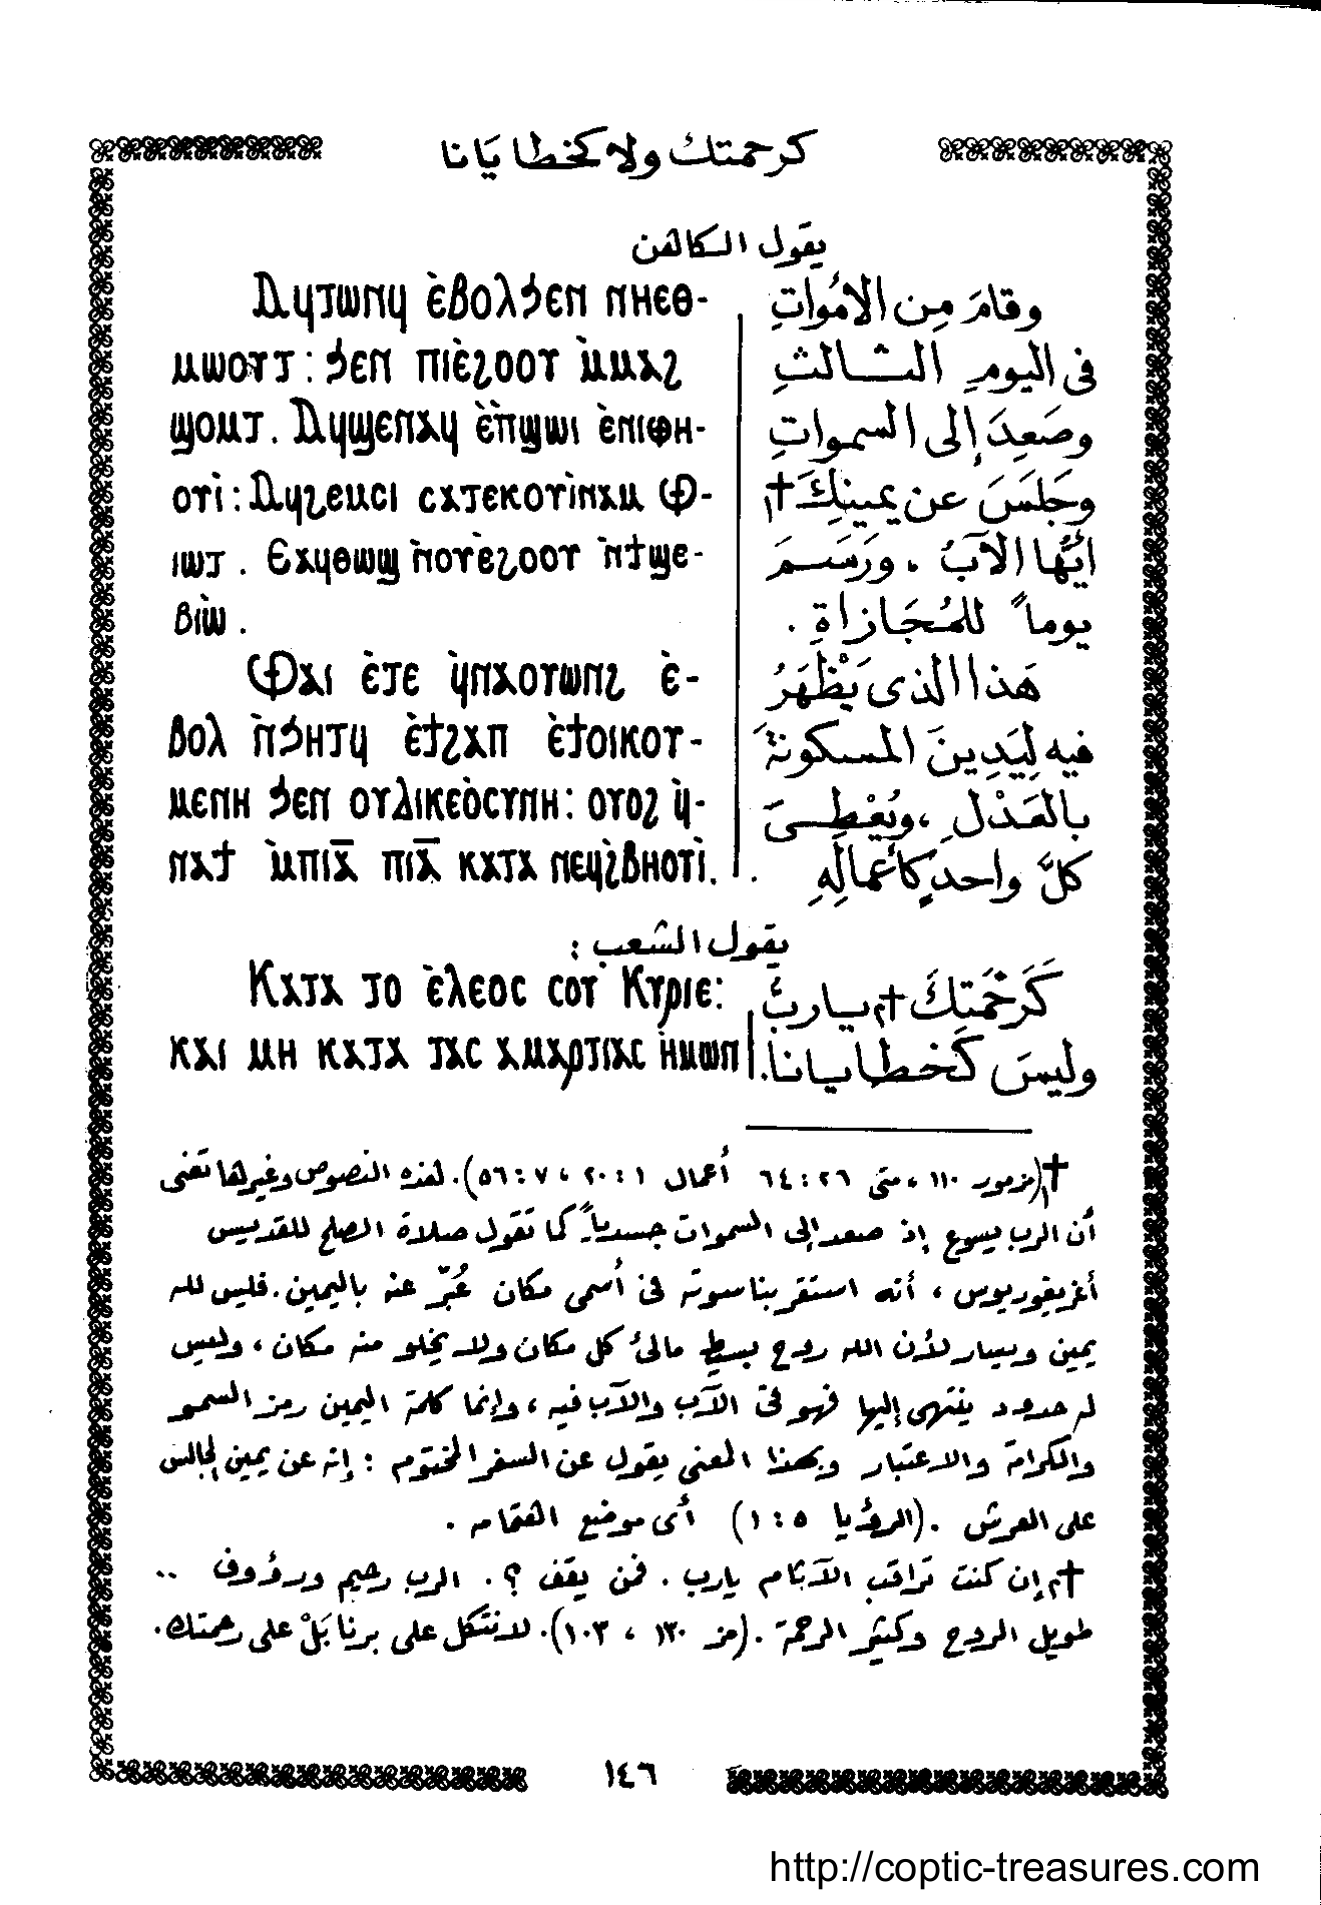 كرحمتك ولا كخطايانا
يقول الكاهن
Ⲁϥⲧⲱⲛϥ ⲉ̀ⲃⲟⲗϧⲉⲛ ⲛⲏⲉⲑ-
ⲙⲱⲟⲩⲧ : ϧⲉⲛ ⲡⲓⲉ̀ϩⲟⲟⲩ ⲙ̀ⲙⲁϩ
ϣⲟⲙⲧ . Ⲁϥϣⲉⲛⲁϥ ⲉ̀ⲡ̀ϣⲱⲓ ⲉ̀ⲛⲓⲫⲏ-
ⲟⲩⲓ̀ : Ⲁϥϩⲉⲙⲥⲓ ⲥⲁⲧⲉⲕⲟⲩⲓ̀ⲛⲁⲙ Ⲫ-
ⲓⲱⲧ . Ⲉⲁϥⲑⲱϣ ⲛ̀ⲟⲩⲉ̀ϩⲟⲟⲩ ⲛ̀ϯϣⲉ-
ⲃⲓⲱ̀ .
Ⲫⲁⲓ ⲉ̀ⲧⲉ ϥ̀ⲛⲁⲟⲩⲱⲛϩ ⲉ̀-
ⲃⲟⲗ ⲛ̀ϧⲏⲧϥ ⲉ̀ϯϩⲁⲡ ⲉ̀ϯⲟⲓⲕⲟⲩ-
ⲙⲉⲛⲏ ϧⲉⲛ ⲟⲩⲇⲓⲕⲉⲟ̀ⲥⲩⲛⲏ : ⲟⲩⲟϩ ϥ̀-
ⲛⲁϯ ⲙ̀ⲡⲓⲁ̅ ⲡⲓⲁ̅ ⲕⲁⲧⲁ ⲛⲉϥϩ̀ⲃⲏⲟⲩⲓ̀.
وقامَ مِن الأمُواتِ
فى اليومِ الثالثِ
وصَعِدَ إلى السمواتِ
وجَلسَ عن يمينِكَ †١
أيُّها الآبُ . ورَسَمَ
يوماً للمُجَازاةِ .
هَذا الذى يَظْهَرُ
فيه لِيَدِينَ المسكونةَ
بالعَدْلِ ، ويُعْطِىَ
كلَّ واحدٍ كأعمالِهِ .
يقول الشعب :
Ⲕⲁⲧⲁ ⲧⲟ ⲉ̀ⲗⲉⲟⲥ ⲥⲟⲩ Ⲕⲩⲣⲓⲉ:
ⲕⲁⲓ ⲙⲏ ⲕⲁⲧⲁ ⲧⲁⲥ ⲁⲙⲁⲣⲧⲓⲁⲥ ⲏ̀ⲙⲱⲛ
كَرَحْمَتِكَ †٢ ياربُّ
وليسَ كَخطايانا.
†١ (مزمور ١١٠ ، متى ٢٦ : ٦٤ أعمال ١ : ٢٠ ، ٧ : ٥٦). لهذه النصوص وغيرها تعنى
أن الرب يسوع إذ صعد إلى السموات جسدياً كما تقول صلاة الصلح للقديس
أغريغوريوس ، أنه استقر بناسوته فى أسمى مكان عُبّر عنه باليمين . فليس لله
يمين ويسار لأن الله روح بسيطٍ مالئ كل مكان ولا يخلو منه مكان ، وليس
له حدود ينتهى إليها فهو فى الآب والآب فيه ، وإنما كلمة اليمين رمز السمو
والكرامة والاعتبار وبهذا المعنى يقول عن السفر المختوم : إنه عن يمين الجالس
على العرش . (الرؤيا ٥ : ١) أى موضع
†٢ إن كنت تراقب الآثام يارب . فمن يقف ؟ . الرب رحيم ورؤوف ..
طويل الروح وكثير الرحمة . (مز ١٣٠ ، ١٠٣). لا نتكل على برنا بَلْ على رحمتك.
١٤٦
http://coptic-treasures.com